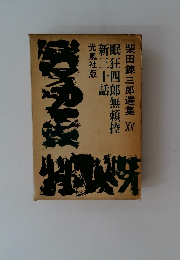 柴田錬三郎選集 XV
眠狂四郎無頼控
新三十話
光風社版